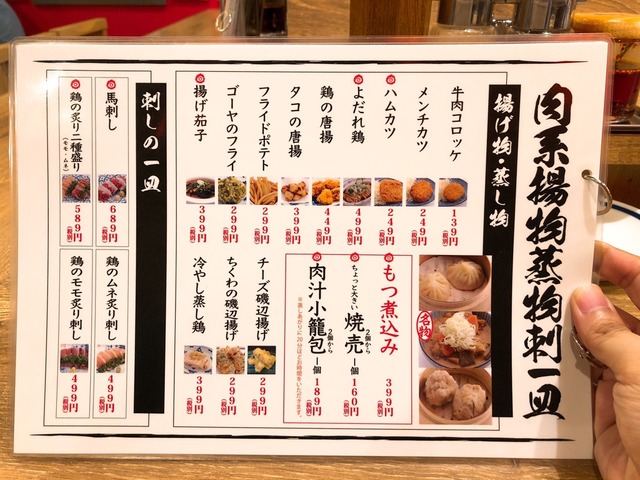 肉系揚物蒸物刺一皿
揚げ物・蒸し物
牛肉コロッケ
139円
(税別)
メンチカツ
249円
(税別)
ハムカツ
249円
(税別)
よだれ鶏
499円
(税別)
鶏の唐揚
449円
(税別)
タコの唐揚
399円
(税別)
フライドポテト
299円
(税別)
ゴーヤのフライ
299円
(税別)
揚げ茄子
399円
(税別)
名物
もつ煮込み
399円
(税別)
ちょっと大きい 焼売 一個
2個から
160円
(税別)
肉汁小籠包 一個
2個から
189円
(税別)
※蒸しあがりに20分ほどお時間をいただきます。
チーズ磯辺揚げ
299円
(税別)
ちくわの磯辺揚げ
299円
(税別)
冷やし蒸し鶏
399円
(税別)
刺しの一皿
馬刺し
689円
(税別)
鶏の炙り二種盛り
(モモ・ムネ)
589円
(税別)
鶏のムネ炙り刺し
499円
(税別)
鶏のモモ炙り刺し
499円
(税別)